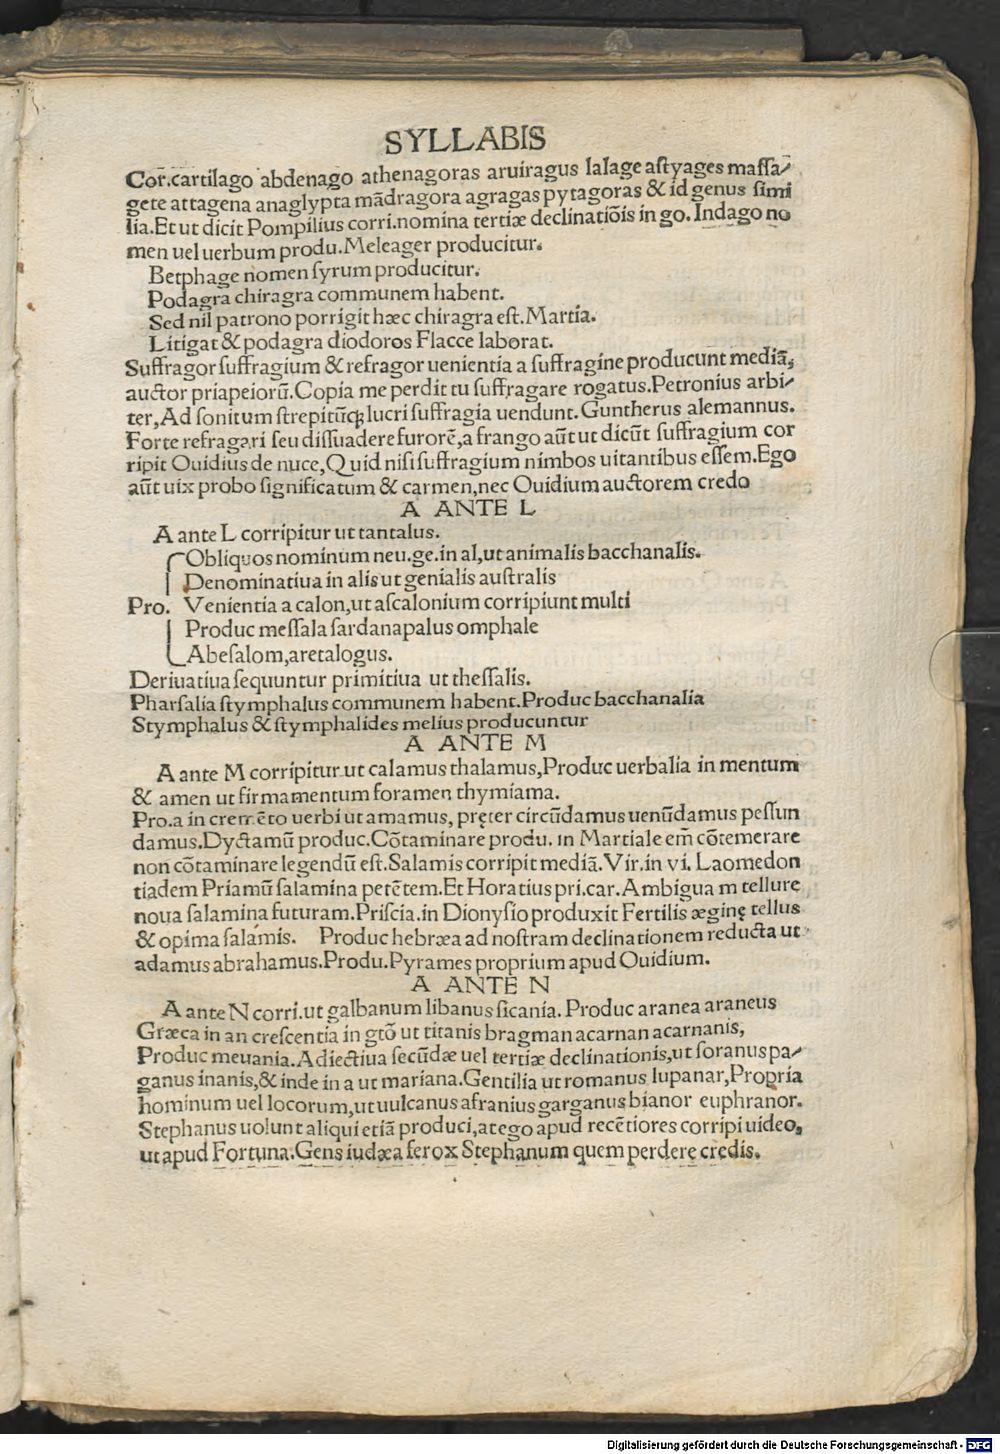 SYLLABIS
Cor.cartilago abdenago athenagoras aruiragus lalage aſtyages maſſa⸗
gete attagena anaglypta mādragora agragas pytagoras & id genus ſimi
lia.Et ut dicit Pompilius corri.nomina tertiæ declinatiōis in go. Indago no
men uel uerbum produ.Meleager producitur.
Betphage nomen ſyrum producitur.
Podagra chiragra communem habent.
Sed nil patrono porrigit hæc chiragra eſt.Martia.
Litigat & podagra diodoros Flacce laborat.
Suffragor ſuffragium & refragor uenientia a ſuffragine producunt mediā,
auctor priapeiorū.Copia me perdit tu ſuffragare rogatus.Petronius arbi⸗
ter,Ad ſonitum ſtrepitūꝗ lucri ſuffragia uendunt.Guntherus alemannus.
Forte refragari ſeu diſſuadere furorē,a frango aūt ut dicūt ſuffragium cor
ripit Ouidius de nuce,Quid niſi ſuffragium nimbos uitantibus eſſem.Ego
aūt uix probo ſignificatum & carmen,nec Ouidium auctorem credo
A ANTE L
A ante L corripitur ut tantalus.
Obliquos nominum neu.ge.in al,ut animalis bacchanalis.
Denominatiua in alis ut genialis auſtralis
Pro. Venientia a calon,ut aſcalonium corripiunt multi
Produc meſſala ſardanapalus omphale
Abeſalom,aretalogus.
Deriuatiua ſequuntur primitiua ut theſſalis.
Pharſalia ſtymphalus communem habent.Produc bacchanalia
Stymphalus & ſtymphalides melius producuntur
A ANTE M
A ante M corripitur ut calamus thalamus,Produc uerbalia in mentum
& amen ut firmamentum foramen thymiama.
Pro.a in cremēto uerbi ut amamus, pręter circūdamus uenūdamus peſſun
damus.Dyctamū produc.Cōtaminare produ. in Martiale em̄ cōtemerare
non cōtaminare legendū eſt.Salamis corripit mediā.Vir.in vi. Laomedon
tiadem Priamū ſalamina petētem.Et Horatius pri.car.Ambigua m tellure
noua ſalamina futuram.Priſcia.in Dionyſio produxit Fertilis æginę tellus
& opima ſalamis. Produc hebræa ad noſtram declinationem reducta ut
adamus abrahamus.Produ.Pyrames proprium apud Ouidium.
A ANTE N
A ante N corri.ut galbanum libanus ſicania. Produc aranea araneus
Græca in an creſcentia in gtō ut titanis bragman acarnan acarnanis,
Produc meuania.Adiectiua ſecūdæ uel tertiæ declinationis,ut ſoranus pa⸗
ganus inanis,& inde in a ut mariana.Gentilia ut romanus lupanar,Propria
hominum uel locorum,ut uulcanus afranius garganus bianor euphranor.
Stephanus uolunt aliqui etiā produci,at ego apud recētiores corripi uideo,
ut apud Fortuna.Gens iudæa ferox Stephanum quem perdere credis.
Digitalisierung gefördert durch die Deutsche Forschungsgemeinschaft - DFG